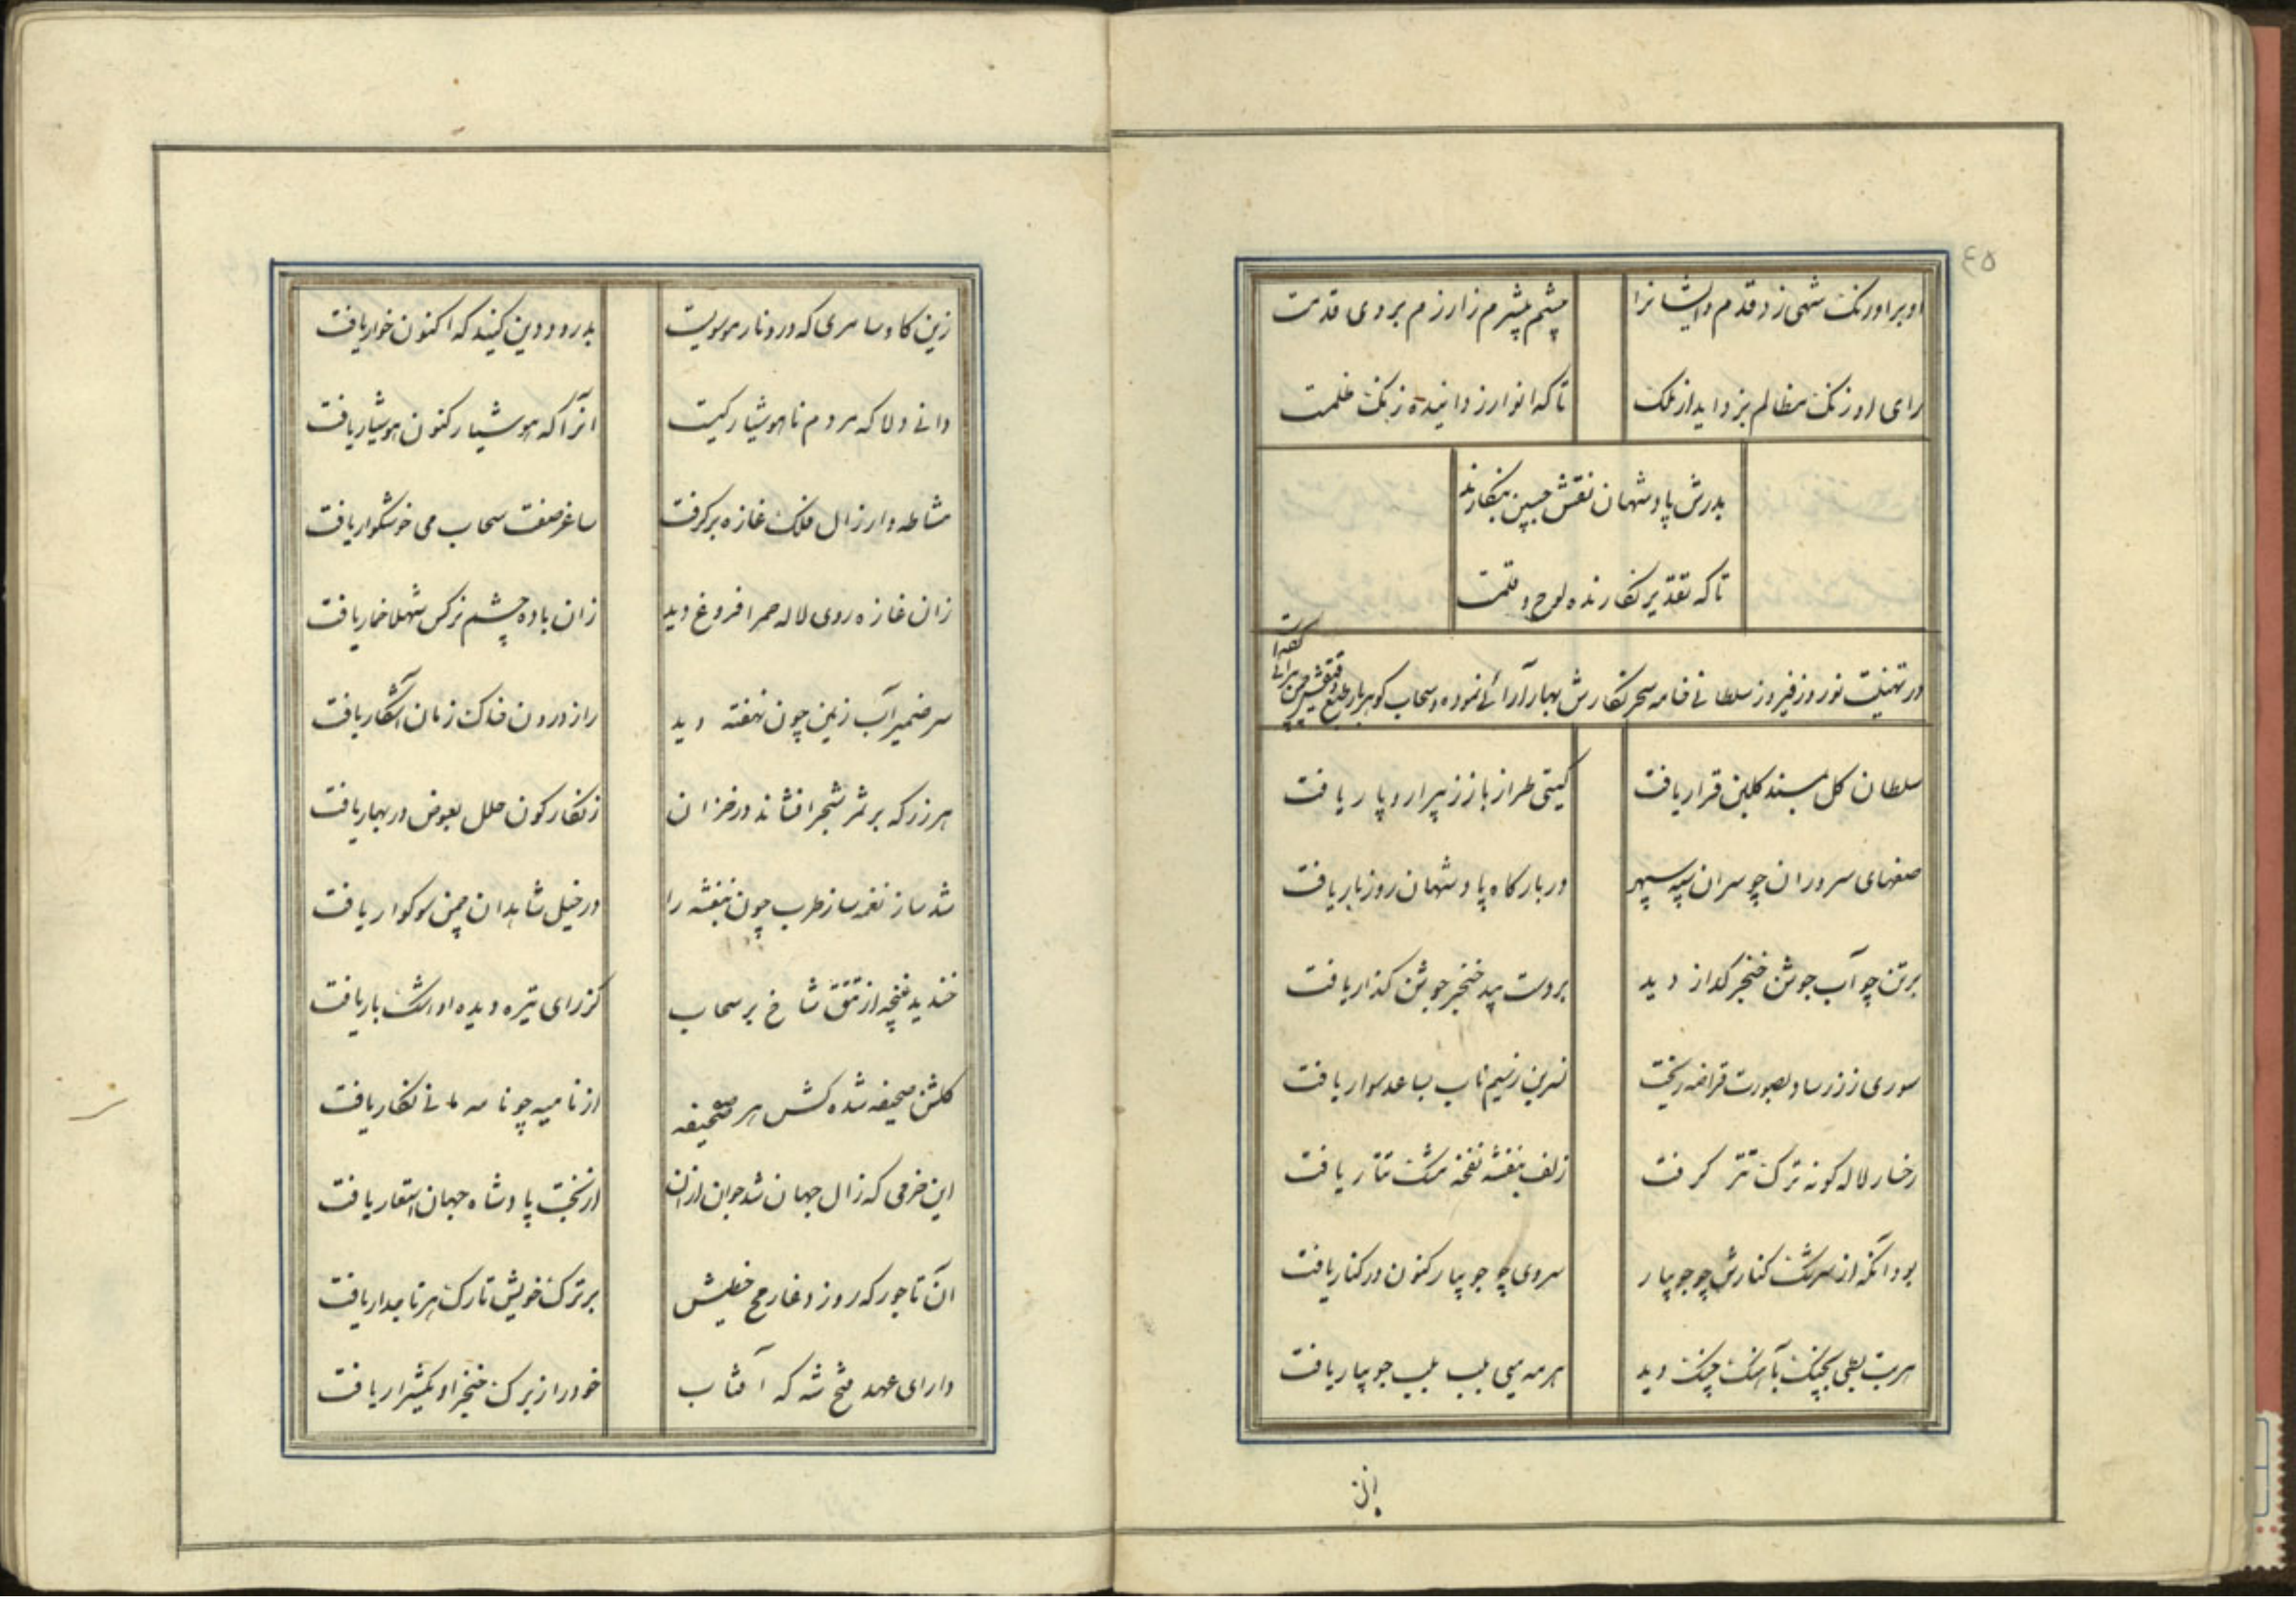 ٤٥
او بر اورنک شهی زد قدم و ایشانرا
چشم چشم زارزم بروی قدمت
رای او زنک مظالم بزداید از ملک
تا که انوار زداینده زنک ظلمت
بدرش پادشهان نقش جبین بنکارند
تا که تقدیر نکارنده لوح و قلمت
در تهنیت نوروز فیروز سلطانی خامه سحر نکارش بهار آرائی نموده و سحاب کوهربار طبع
سلطان کل بمسند کلبن قرار یافت
کیتی طراز باز ز پیرار و پار یافت
صفهای سروران چو سران سپه سپهر
دربارکاه پادشهان روز بار یافت
برتن چو آب جوشن خنجر کداز دید
بر دست بید خنجر جوشن کذار یافت
سوری ز زر ساو بصورت قراضه ریخت
نسرین ز سیم ناب بساعد سوار یافت
رخسار لاله کونه ترک تتر کرفت
زلف بنفشه نفخه مشک تتار یافت
بود آنکه از سرشک کنارش چو جویبار
سروی چو جویبار کنون در کنار یافت
هر بت بطی بچنک بآهنک چنک دید
هر مه میی بلب بلب جویبار یافت
زین کاو سامری که درو نار موسویست
بدرود دین کنید که اکنون خوار یافت
دانی دلا که مردم ناهوشیار کیست
آنرا که هوشیار کنون هوشیار یافت
مشاطه وار زال فلک غازه برکرفت
ساغر صفت سحاب می خوشکوار یافت
زان غازه روی لاله حمرا فروغ دید
زان باده چشم نرکس شهلا خمار یافت
سر ضمیر آب زمین چون نهفته دید
راز درون خاک زمان آشکار یافت
هر زر که بر ثمر شجر افشاند در خزان
زنکار کون حلل بعوض در بهار یافت
شد ساز نغمه ساز طرب چون بنفشه را
در خیل شاهدان چمن سوکوار یافت
خندید غنچه از تتق شاخ بر سحاب
کز رای تیره دیده او اشک بار یافت
کلشن صحیفه شده کش هر صحیفه
از نامیه چو نامه مانی نکار یافت
این خرمی که زال جهان شد جوان ازان
از بخت پادشاه جهان مستعار یافت
آن تاجور که روز وغا رمح خطیش
بر ترک خویش تارک هر تاجدار یافت
دارای عهد فتح شه که آفتاب
خود را ز برک خنجر او یکشرار یافت